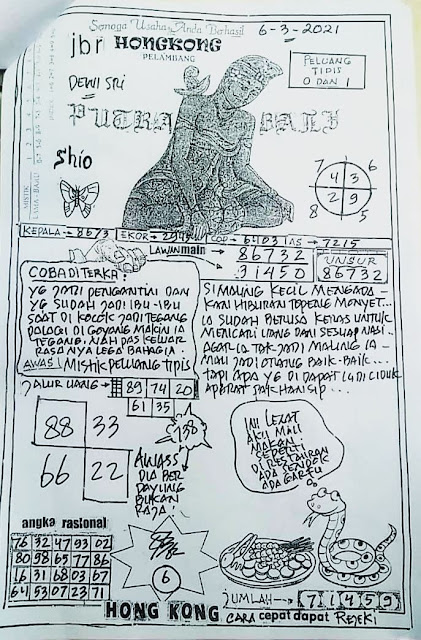 Semoga Usaha Anda Berhasil
6-3-2021
jbr HONGKONG
PELAMBANG
PELUANG
TIPIS
0 DAN 1
DEWI SRI
PUTRA BALI
Shio
7 6
4 3
2 9
8 5
KEPALA → 8673 EKOR → 2945 COP → 6403 AS → 7215
LAWAN main → 86732
31450
UNSUR
86732
COBA DITERKA!
YG JADI PENGANTIN DAN
YG SUDAH JADI IBU-IBU
SAAT DI KOCOK JADI TEGANG
PALAGI DI GOYANG MAKIN IA
TEGANG. NAH PAS KELUAR
RASANYA LEGA BAHAGIA.
AWAS! MISTIK PELUANG TIPIS
SI MALING KECIL MENGADA-
KAN HIBURAN TOPENG MONYET...
IA SUDAH BERUSA KERAS UNTUK
MENCARI UANG DAN SESUAP NASI..
AGAR IA TAK JADI MALING IA
MAU JADI ORANG BAIK-BAIK...
TAPI APA YG DI DAPAT IA DI CIDUK
APARAT PAK HANSIP...
JALUR UANG → 89 74 20
61 35
88 33
66 22
138
AWASS
DIA BER
PAYUNG
BUKAN
RAJA!
INI LEZAT
AKU MAU
MAKAN
SEPERTI
DI RESTAURAN
ADA SENDOK
ADA GARPU
angka rasional
76 32 47 93 02
80 98 65 77 86
16 31 68 03 67
64 53 07 23 71
6
JUMLAH → 7 1 4 5 9
HONG KONG CARA cepat dapat REJEKI